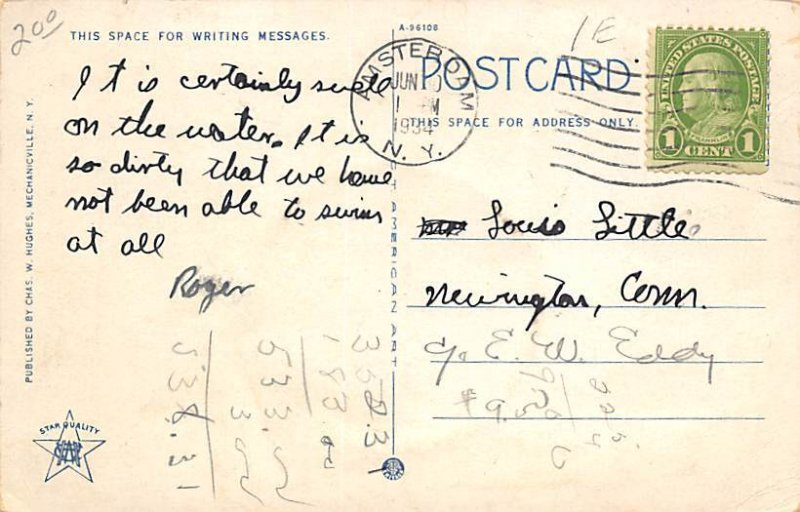 200
THIS SPACE FOR WRITING MESSAGES.
A-96108
1E
POST CARD
THIS SPACE FOR ADDRESS ONLY.
AMSTERDAM
JUN
M
1934
N. Y.
UNITED STATES POSTAGE
FRANKLIN
1 CENT 1
It is certainly swell
on the water. It is
so dirty that we have
not been able to swim
at all
Roger
Louis Little
Newington, Conn.
E. W. Eddy
PUBLISHED BY CHAS. W. HUGHES, MECHANICVILLE, N. Y.
AMERICAN ART
STAR QUALITY